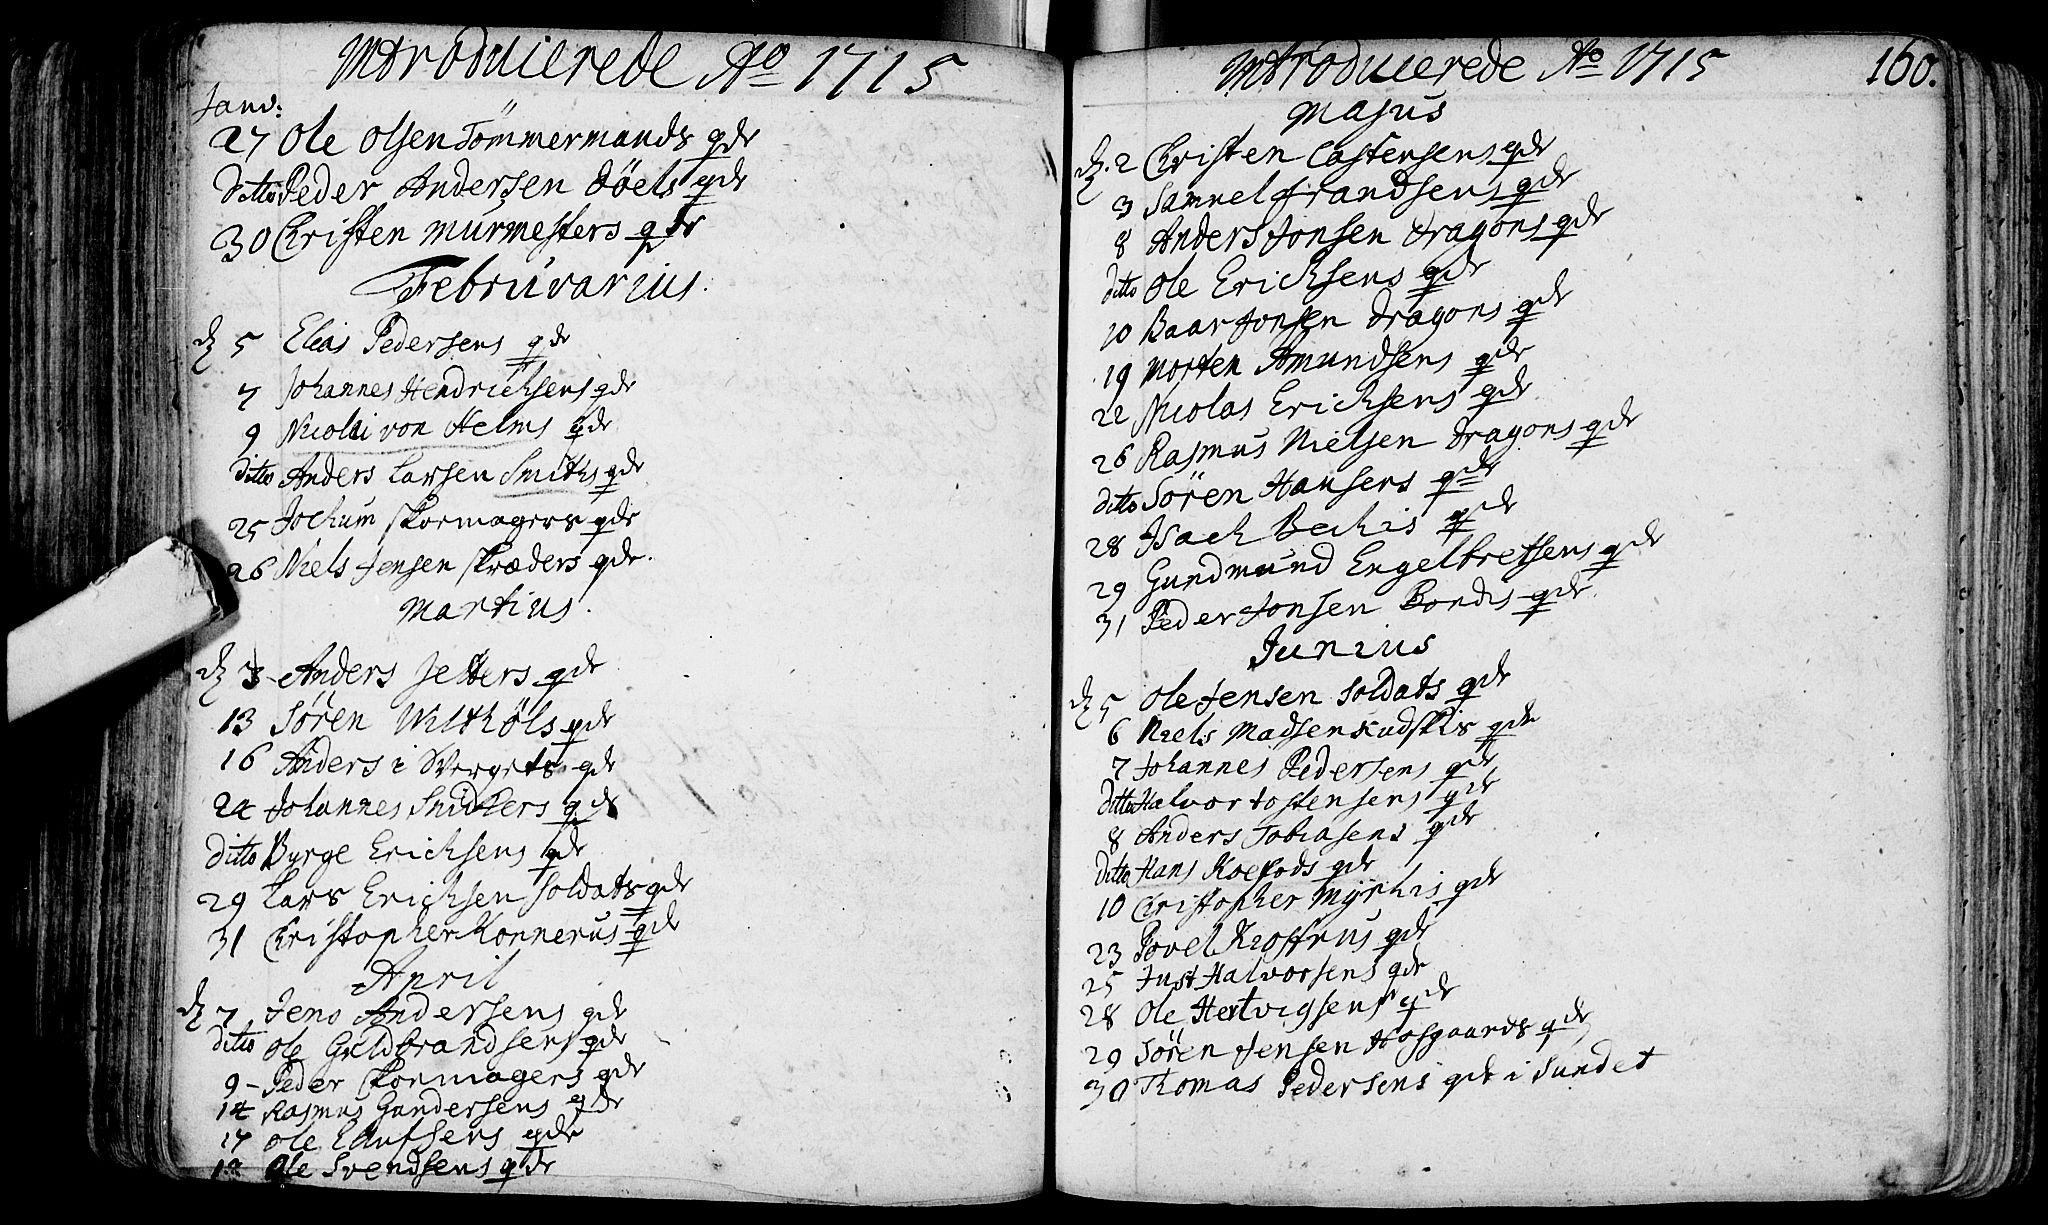 Introducerede Ao 1715
Janv:
27 Ole Olsen Tömmermands qde
ditto Peder Andersen Döels qde
30 Christen Murmesters qde
Februvarius.
d 5 Elias Pedersens qde
7 Johannes Hendrichsens qde
9 Nicolai von Helms qde
ditto Anders Larsen Smiths qde
25 Jochum skormagers qde
26 Niels Jensen skræders qde.
Martius.
d 3 Anders qde
13 Sören qde
16 Anders i qde
24 Johannes Snidkers qde
ditto Byrge Erichsens qde
29 Lars Erichsen soldats qde
31 Christopher Konnerus qde
April
d 7 Jens Andersens qde
ditto Ole Guldbrandsens qde
9 Peder skormagers qde
14 Rasmus Gundersens qde
17 Ole qde
Ole Svendsens qde
Introducerede Ao 1715
160.
Majus
d. 2 Christen Castensens qde
3 Samuel Frandsens qde
8 Anders Jonsen dragons qde
ditto Ole Erichsens qde
10 Baar Jonsen dragons qde
19 Morten Amundsens qde
22 Nicolas Erichsens qde
26 Rasmus Nielsen dragons qde
ditto Sören Hansens qde
28 Isach Bechis qde
29 Gundmund Engelbretsens qde
31 Peder Jonsen Bondes qde
Junius
d 5 Ole Jensen soldats qde
6 Niels Madsen Kudskis qde
7 Johannes Pedersens qde
ditto Halvor Tostensens qde
8 Anders Tobiasens qde
ditto Hans Koefods qde
10 Christopher Myrhis qde
23 Povel qde
25 Just Halvorsens qde
28 Ole Hertvigsens qde
29 Sören Jensen Hofgaards qde
30 Thomas Pedersens qde i Sundet